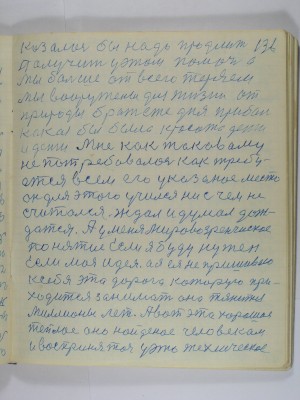 казалось бы надо продлит 136
получит у этом помощ а
мы больше от всего теряем
мы вооружены для жизни от
природы братьже дня прибав
какая бы была красота души
и дети Мне как таковому
не потребовалося как требу-
ется всем его указаное место
он для этого учился ни с чем не
считался. ждал и думал дож-
датся. А у меня мировозренческое
понятие если я буду нужен
если моя идея. а я ея не пришиваю
к себя эта дорога которую при-
ходится занимать она тянется
миллионы лет. А вот эта хорошая
теплое оно найденое человекам
и воспринятоя ужо техническое